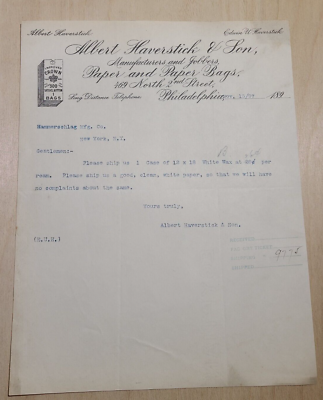 Albert Haverstick
Edwin U. Haverstick
Albert Haverstick & Son,
Manufacturers and Jobbers,
Paper and Paper Bags,
469 North 2nd Street,
Long Distance Telephone.
Philadelphia, 189
CROWN
BAGS
Hammerschlag Mfg. Co.
New York, N.Y.
Gentlemen:-
Please ship us 1 Case of 12 x 18 White Wax at per
ream. Please ship us a good, clean, white paper, so that we will have
no complaints about the same.
Yours truly,
Albert Haverstick & Son.